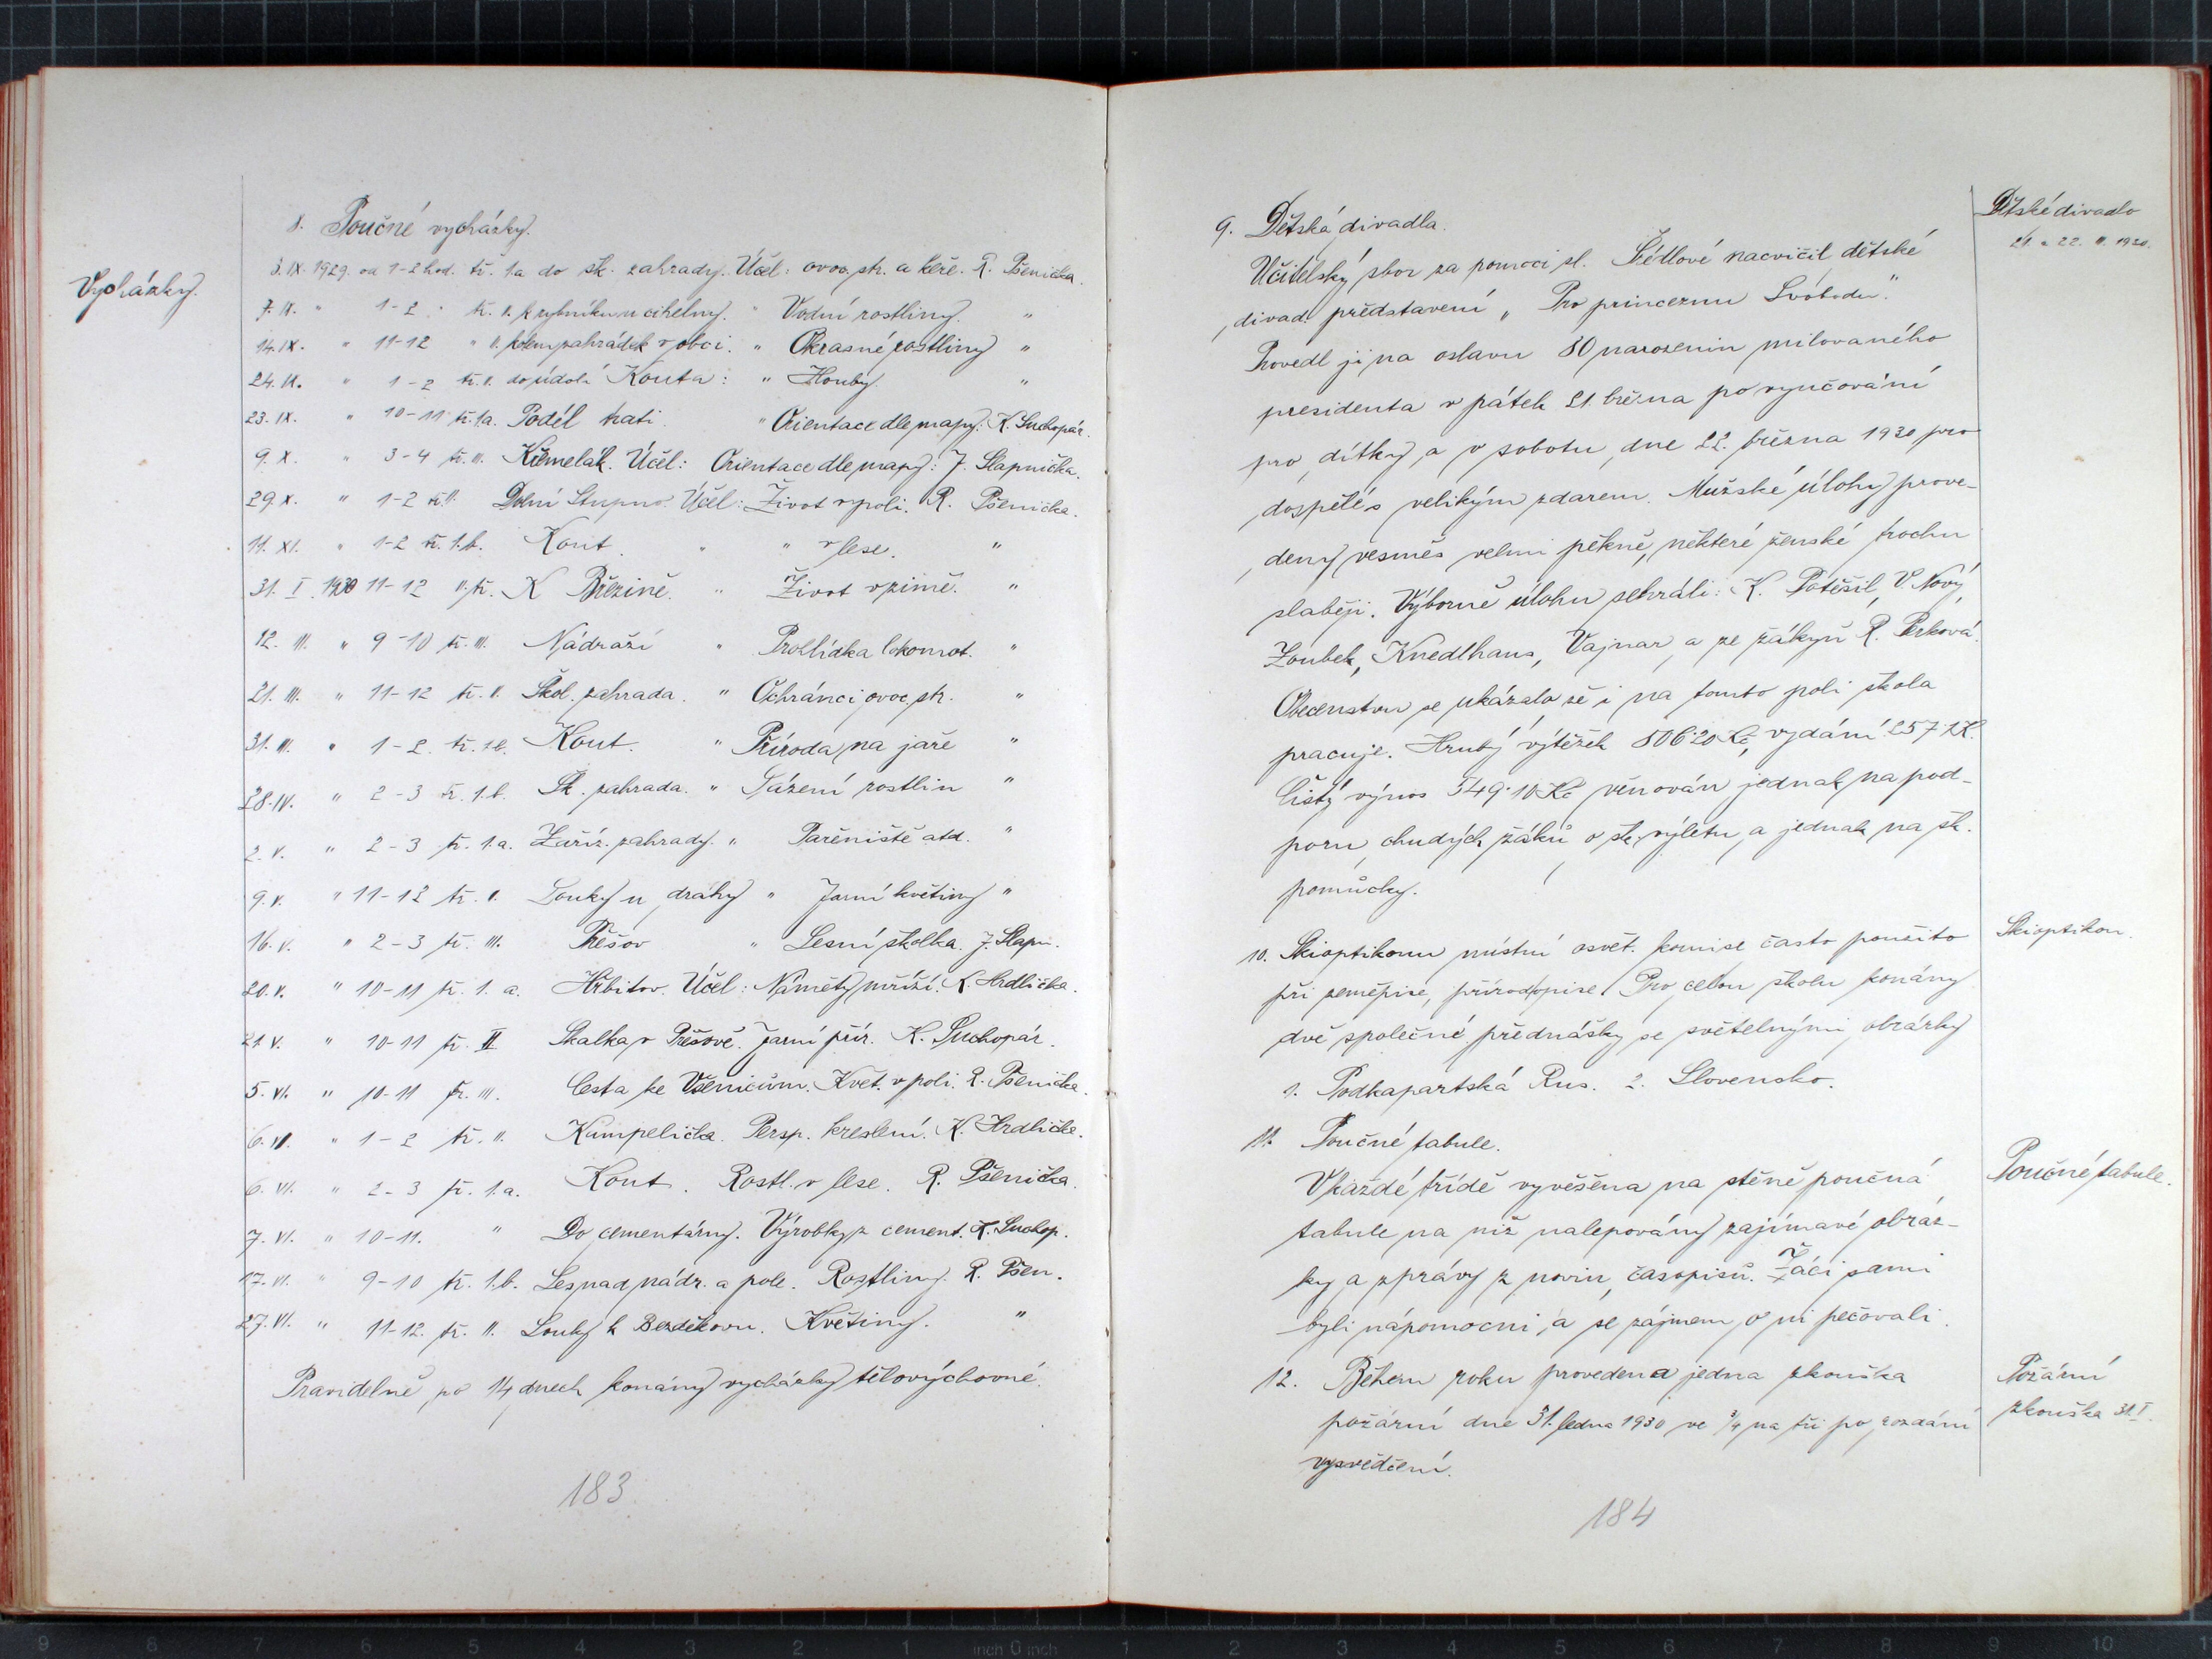 Vycházky.
8. Poučné vycházky.
3. IX. 1929. od 1-2 hod. tř. 1.a do šk. zahrady. Účel: ovoc. str. a keře. R. Pšenička.
7. IX. " 1-2 " tř. II. k rybníku u cihelny. " Vodní rostliny. "
14. IX. " 11-12 " II. kolem zahrádek v obci. " Okrasné rostliny "
24. IX. " 1-2 tř. II. do údolí Kouta: " Houby. "
23. IX. " 10-11 tř. 1.a. Podél trati. " Orientace dle mapy: K. Suchopár.
9. X. " 3-4 tř. III. Křemelák. Účel: Orientace dle mapy: J. Slapnička.
29. X. " 1-2 tř. II. Dolní Stupno. Účel: Život v poli. R. Pšenička.
11. XI. " 1-2 tř. 1.b. Kout. " " v lese. "
31. I. 1930 11-12 II. tř. K Březině. " Život v zimě. "
12. III. " 9-10 tř. III. Nádraží " Prohlídka lokomot. "
21. III. " 11-12 tř. II. Škol. zahrada. " Ochránci ovoc. str. "
31. III. " 1-2. tř. Kout. " Příroda na jaře "
28. IV. " 2-3 tř. 1.b. Šk. zahrada. " Sázení rostlin "
2. V. " 2-3 tř. 1.a. Zaříz. zahrady. " Pařeniště atd. "
9. V. " 11-12 tř. II. Louky u dráhy " Jarní květiny "
16. V. " 2-3 tř. III. Přešov " Lesní školka. J. Slapn.
20. V. " 10-11 tř. 1. a. Hřbitov. Účel: Náměty mříží. K. Hrdlička.
21. V. " 10-11 tř. II Skalka v Přešově. Jarní přír. K. Suchopár.
5. VI. " 10-11 tř. III. Cesta ke Všenicům. Květ. v poli. R. Pšenička.
6. VI. " 1-2 tř. II. Kampelička. Persp. kreslení. K. Hrdlička.
6. VI. " 2-3 tř. 1.a. Kout. Rostl. v lese. R. Pšenička.
7. VI. " 10-11. " Do cementárny. Výrobky z cement. K. Suchop.
17. VI. " 9-10 tř. 1.b. Les nad nádr. a pole. Rostliny. R. Pšen.
27. VI. " 11-12. tř. II. Louky k Bezděkovu. Květiny. "
Pravidelně po 14 dnech konány vycházky tělovýchovné.
183.
9. Dětská divadla.
Dětské divadlo
21. a 22. III. 1930.
Učitelský sbor za pomoci sl. Šédlové nacvičil dětské
divad. představení „Pro princeznu Svobodu."
Provedl ji na oslavu 80 narozenin milovaného
presidenta v pátek 21. března po vyučování
pro dítky a v sobotu, dne 22. března 1930 pro
dospělé s velikým zdarem. Mužské úlohy prove-
deny vesměs velmi pěkně, některé ženské trochu
slaběji. Výborně úlohu sehráli: K. Potěšil, V. Nový,
Zoubek, Knedlhans, Vajnar, a ze žákyň R. Perková.
Obecenstvu se ukázalo že i na tomto poli škola
pracuje. Hrubý výtěžek 806·20 Kč, vydání 257·1 K.
Čistý výnos 549·10 Kč věnován jednak na pod-
poru chudých žáků o šk. výletu, a jednak na šk.
pomůcky.
10. Skioptikonu místní osvět. komise často použito
Skioptikon.
při zeměpise, přírodopise. Pro celou školu konány
dvě společné přednášky se světelnými obrázky
1. Podkapartská Rus. 2. Slovensko.
11. Poučné tabule.
Poučné tabule.
V každé třídě vyvěšena na stěně poučná
tabule na niž nalepovány zajímavé obráz-
ky a zprávy z novin, časopisů. Žáci sami
byli nápomocni a se zájmem o ni pečovali.
12. Během roku provedena jedna zkouška
Požární
zkouška 31. I.
požární dne 31. ledna 1930 ve 3/4 na tři po rozdání
vysvědčení.
184